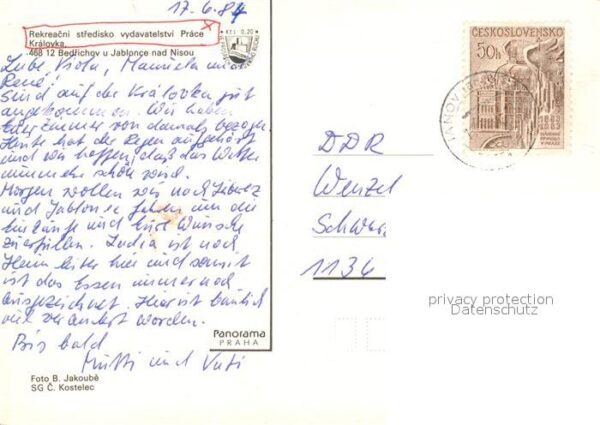 17.6.84
Rekreační středisko vydavatelství Práce
Královka,
468 12 Bedřichov u Jablonce nad Nisou
Kčs 0,20
Liebe Viola, Manuela und
René!
Sind auf der Královka gut
angekommen. Wir haben
Euer Zimmer von damals bezogen.
Heute hat der Regen aufgehört
und wir hoffen, daß das Wetter
nunmehr schön wird.
Morgen wollen wir nach Liberez
und Jablonec fahren um die
Einkäufe und Eure Wünsche
zu erfüllen. ist noch
Heimleiter hier und somit
ist das Essen immer noch
ausgezeichnet. Hier ist baulich
viel verändert worden.
Bis bald
Mutti und Vati
Foto B. Jakoubě
SG Č. Kostelec
Panorama
PRAHA
ČESKOSLOVENSKO
50h
1883
1983
DDR
Wenzel
Schwar
1134
privacy protection
Datenschutz